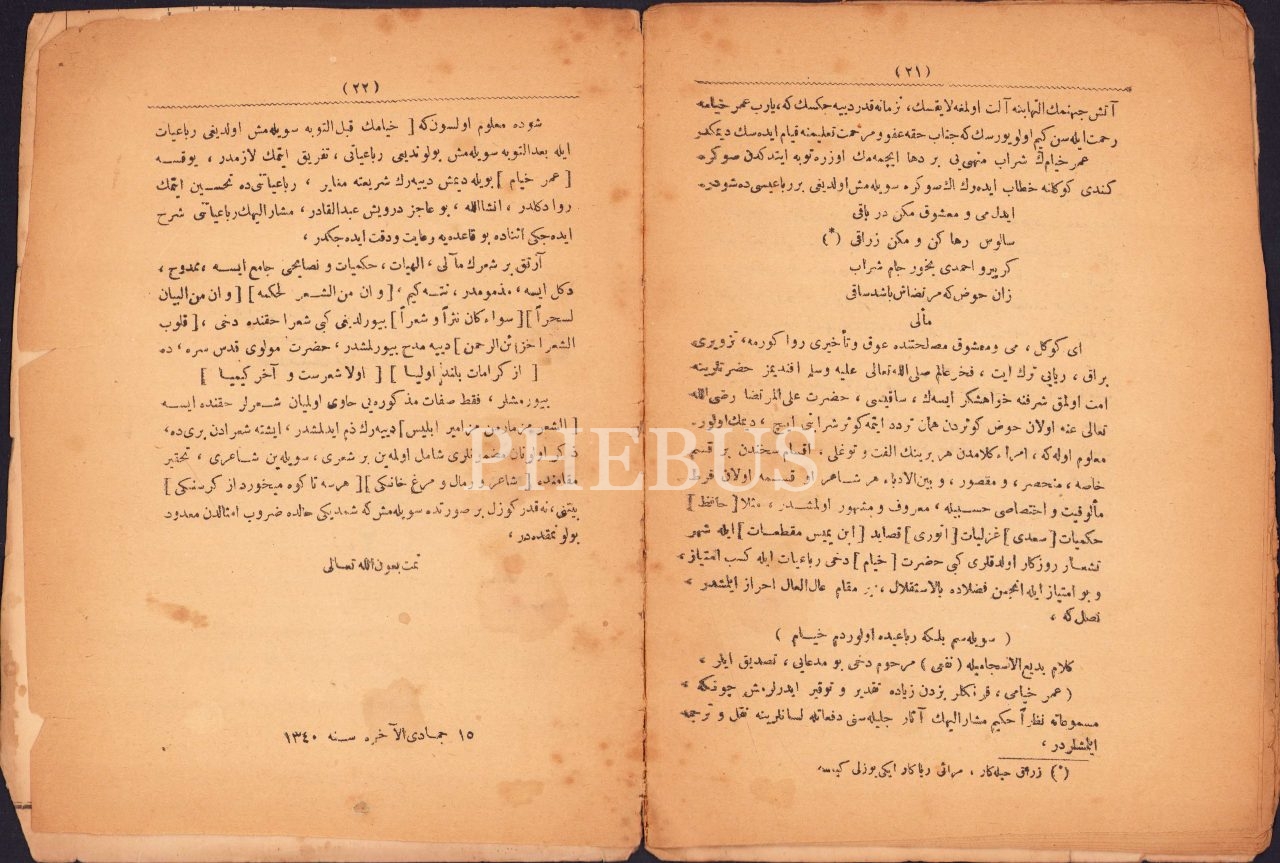 (٢١)
آتش جهنمك التهابنه آلت اولمغه لايقسك، نزمانه قدر دييه جكسك كه، يارب عمر خيامه
رحمت ايله سن كيم اولويورسك كه جناب حقه عفو و مرحمت تعليمنه قيام ايده سك ديمكدر
عمر خيامڭ شراب منهى‌يى بر دها ايچمه‌مك اوزره توبه ايتدكدن صوكره
كندى كوكلنه خطاب ايده‌رك اك صوكره سويله‌مش اولديغى بر رباعيسى ده شودر.
ايدل مى و معشوق مكن در باقى
سالوس رها كن و مكن زراقى (*)
كر پيرو احمدى بخور جام شراب
زان حوض كه مرتضاش باشد ساقى
مآلى
اى كوكل، مى ومعشوق مصلحتنده عوق وتأخيرى روا كورمه، تزويرى
براق، ريايى ترك ايت، فخر عالم صلى الله تعالى عليه وسلم افنديمز حضرتلرينه
امت اولمق شرفنه خواهشكر ايسه‌ك، ساقيسى، حضرت على المرتضا رضى الله
تعالى عنه اولان حوض كوثردن همان تردد ايتمه كوثر شرابنى ايچ، ديمك اولور.
معلوم اوله كه، امراء كلامدن هر برينك الفت و توغلى، اقسام سخندن بر قسم
خاصه، منحصر، و مقصور، و بين الادباء هر شاعر او قسمه اولان فرط
مألوفيت و اختصاصى حسبيله، معروف و مشهور اولمشدر، مثلا [حافظ]
حكميات [سعدى] غزليات [انورى] قصايد [ابن يمين مقطعات] ايله شهر
تشعار روزكار اولدقلرى كبى حضرت [خيام] دخى رباعيات ايله كسب امتياز،
و بو امتياز ايله انجمن فضلاده بالاستقلال، بر مقام عال العال احراز ايلمشدر،
نصل كه،
( سويله‌سم بلكه رباعيده اولوردم خيام )
كلام بديع الانسجاميله (نفعى) مرحوم دخى بو مدعايى، تصديق ايلر،
(عمر خيامى، فرنكلر بزدن زياده تقدير و توقير ايدرلرمش چونكه،
مسموعاته نظراً حكيم مشار اليهك آثار جليله‌سنى دفعاتله لسانلرينه نقل و ترجمه
ايتمشلردر،
(*) زراقى حيله‌كار، مرائى رياكار ايكى يوزلى كيمسه
(٢٢)
شوده معلوم اولسون كه [خيامك قبل التوبه سويله‌مش اولديغى رباعيات
ايله بعد التوبه سويله‌مش بولونديغى رباعياتى، تفريق ايتمك لازمدر، يوقسه
[عمر خيام] بويله ديمش دييه‌رك شريعته مغاير، رباعياتى ده تحسين ايتمك
روا دكلدر، انشاالله، بو عاجز درويش عبدالقادر، مشار اليهك رباعياتنى شرح
ايده‌جكى اثناده بو قاعده‌يه رعايت ودقت ايده‌جكدر،
آرتق بر شعرك مآلى، الهيات، حكميات و نصايحى جامع ايسه، ممدوح،
دكل ايسه، مذمومدر، نته‌كيم، [و ان من الشعر لحكمه] [و ان من البيان
لسحراً] [سواء كان نثراً و شعراً] بيورلديغى كبى شعرا حقنده دخى، [قلوب
الشعرا خزائن الرحمن] دييه مدح بيورلمشدر، حضرت مولوى قدس سره، ده
[ از كرامات بلند اوليا ] [ اولا شعرست و آخر كيميا ]
بيورمشلر، فقط صفات مذكوره‌يى حاوى اولميان شعرلر حقنده ايسه
[الشعر مزمار من مزامير ابليس] دييه‌رك ذم ايدلمشدر، ايشته شعرادن برى ده،
ذكر اولونان مضمونلرى شامل اولمه‌ين بر شعرى، سويله‌ين شاعرى، تحقير
مقامنده، [شاعر و رمال و مرغ خانكى] [هرسه تا كوه ميخورد از كرسنكى]
بيتنى، نه قدر كوزل بر صورتده سويله‌مش كه شمديكى حالده ضروب امثالدن معدود
بولونمقده در،
تمت بعون الله تعالى
١٥ جمادى الآخره سنه ١٣٤٠
PHEBUS